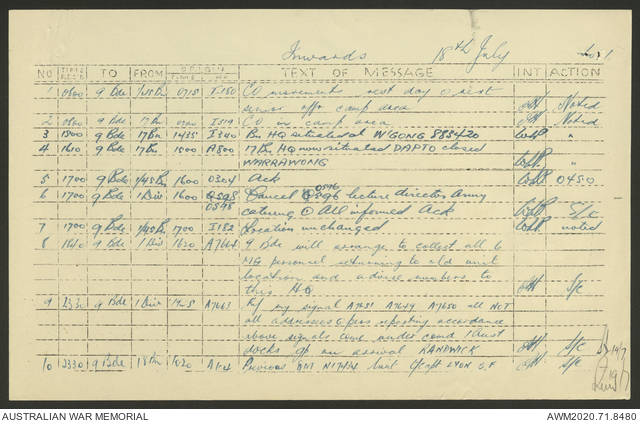 Inwards 18th July
NO TIME RECD TO FROM ORIGIN TIME NO TEXT OF MESSAGE INT ACTION
1 0800 9 Bde 1/45 Bn 0715 I180 CO movements rest day
senior offr camp area Noted
2 0800 9 Bde 17 Bn I319 CO in camp area Noted
3 1500 9 Bde 17 Bn 1435 I340 Bn HQ situated at W'GONG 883420 "
4 1610 9 Bde 17 Bn 1500 A800 17 Bn HQ now situated DAPTO closed
WARRAWONG "
5 1700 9 Bde 1/45 Bn 1600 0304 Ack 0450
6 1700 9 Bde 1 Div 1600 Cancel lecture director Army
0598 catering All informed Ack
7 1700 9 Bde 1/45 Bn 1700 I182 Location unchanged noted
8 1840 9 Bde 1 Div 1620 A7664 9 Bde will arrange to collect all 6
MG personnel returning to old unit
location and advise numbers to
this HQ S/C
9 2330 9 Bde 1 Div A7663 Ref my signal A7650 all NOT
all addresses pers reporting accordance
above signals come under comd 1 Aust
docks on arrival RANDWICK S/C
10 2330 9 Bde 18 Bn 1020 Previous unit LYON S/C
AUSTRALIAN WAR MEMORIAL AWM2020.71.8480